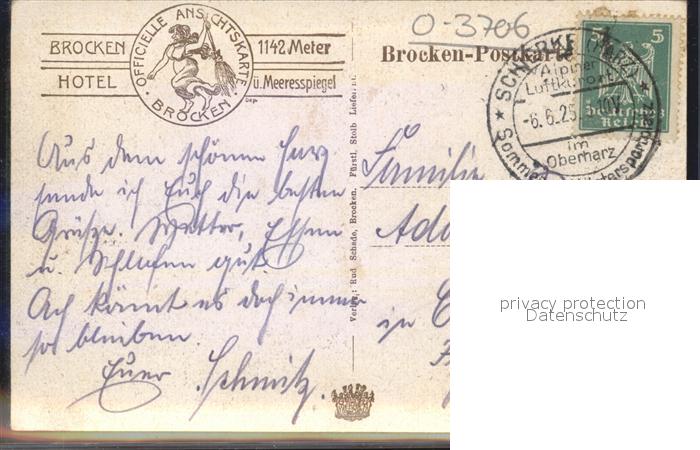 O-3706
OFFICIELLE ANSICHTSKARTE
BROCKEN
BROCKEN 1142 Meter
HOTEL ü. Meeresspiegel
Brocken-Postkarte
SCHIERKE (HARZ)
Alpiner
Luftkurort
-6.6.25. 10V
im
Oberharz
Sommer Wintersportplatz
5 5
Deutsches
Reich
Aus dem schönen Harz
sende ich Euch die besten
Grüße. Wetter, Essen
u. Schlafen gut.
Ach könnt es doch immer
so bleiben.
Euer Schmitz.
Familie
in
Verlag: Rud. Schade, Brocken. Fürstl. Stolb. Lieferant.
privacy protection
Datenschutz